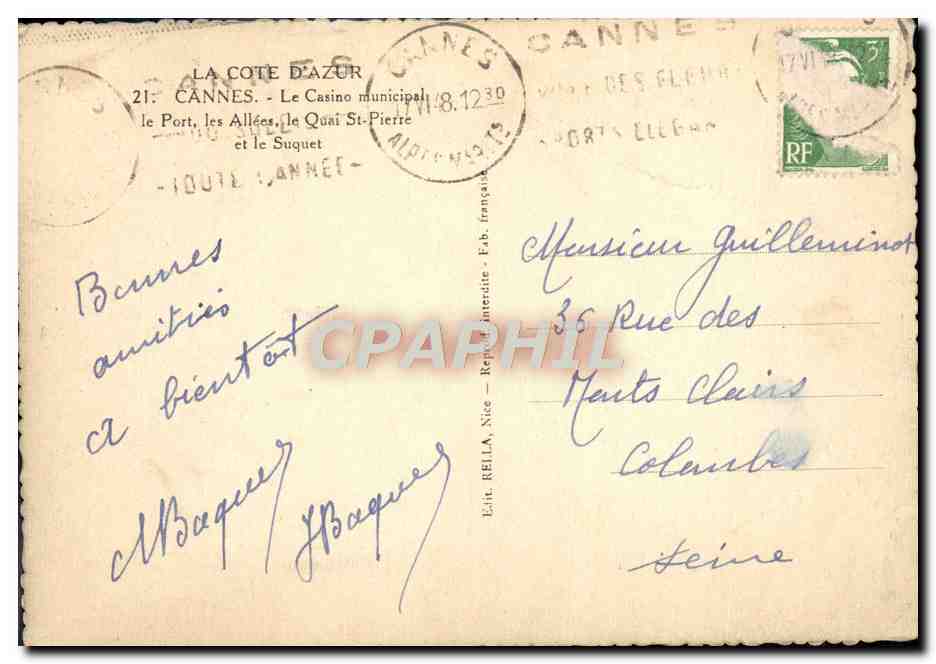 LA COTE D'AZUR
21. CANNES. - Le Casino municipal
le Port, les Allées, le Quai St-Pierre
et le Suquet
CANNES
TOUTE L'ANNEE
CANNES
17 VI 48. 12 30
ALPES MARITS
CANNES
DES FLEURS
SPORTS ELEGAN
3F
RF
Bonnes
amitiés
a bientôt
MBaque
JBaque
Edit. RELLA, Nice — Reprod. interdite - Fab. française
Monsieur Guilleminot
36 Rue des
Monts Clairs
Colombes
Seine
CPAPHIL